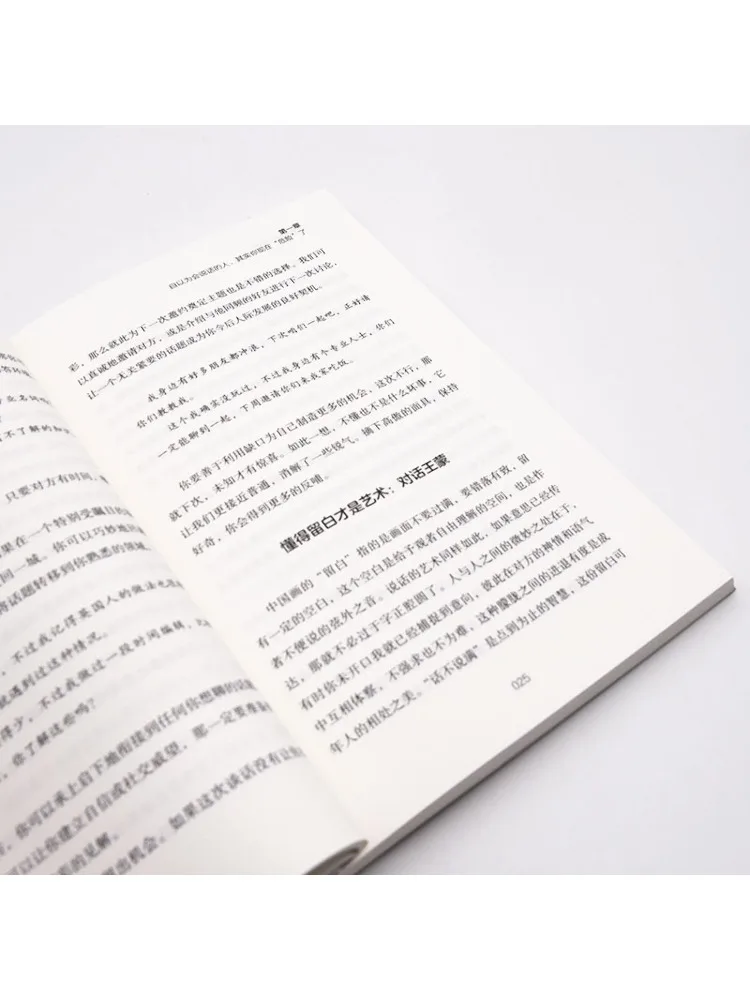 业名词
不了解的和
只要对方有时间，
果在一个特别受瞩目的
回一城。你可以巧妙地
话题转移到你熟悉的领域
不过我记得英国人的做法也
就遇到过这种情况。
得少，不过我做过一段时间编辑，
，你了解这些吗？
，你可以承上启下地衔接到任何你想聊的话
可以让你建立自信或社交威望，那一定要善
彩的见解。
出机会。如果这次谈话没有让
第一章
自以为会说话的人，其实你现在“危险”了
彩，那么就此为下一次邀约奠定主题也是不错的选择。我们可
以真诚地邀请对方，或是介绍与他同频的好友进行下一次讨论，
让一个无关紧要的话题成为你今后人际发展的良好契机。
我身边有好多朋友都冲浪，下次咱们一起吧，正好请
你们教教我。
这个我确实没玩过，不过我身边有个专业人士，你们
一定能聊到一起，下周邀请你们来我家吃饭。
你要善于利用缺口为自己制造更多的机会，这次不行，那
就下次，未知才有惊喜。如此一想，不懂也不是什么坏事，它
让我们更接近普通，消解了一些锐气。摘下高傲的面具，保持
好奇，你会得到更多的反哺。
懂得留白才是艺术：对话王蒙
中国画的“留白”指的是画面不要过满，要错落有致，留
有一定的空白，这个空白是给予观者自由理解的空间，也是作
者不便说的弦外之音。说话的艺术同样如此，如果意思已经传
达，那就不必过于字正腔圆了。人与人之间的微妙之处在于，
有时你未开口我就已经捕捉到意向，彼此在对方的神情和语气
中互相体察，不强求也不为难，这种朦胧之间的进退有度是成
年人的相处之美。“话不说满”是点到为止的智慧，这份留白可
025